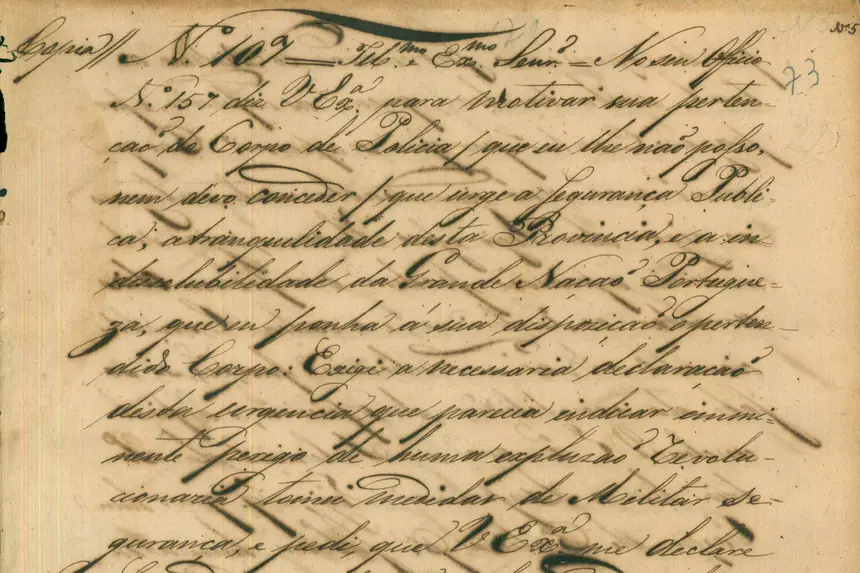 Nº 5
73
Copia // N.º 107 = Ill.mo e Ex.mo Senr. = No seu Officio
Nº 157 diz V Ex.ª, para motivar sua perten-
caõ do Corpo de Policia / que eu lhe naõ posso,
nem devo conceder / que urge a Segurança Publi-
ca, a tranquilidade desta Provincia, e a in-
dissolubilidade da Grande Nacaõ Portugue-
za, que eu ponha á sua dispozicaõ o perten-
dido Corpo: Exigi a necessaria declaracaõ
desta urgencia que parecia indicar immi-
nente perigo de huma expluzaõ Revolu-
cionaria tomei medidas de Militar se-
gurança, e pedi, que V Ex.ª me declare